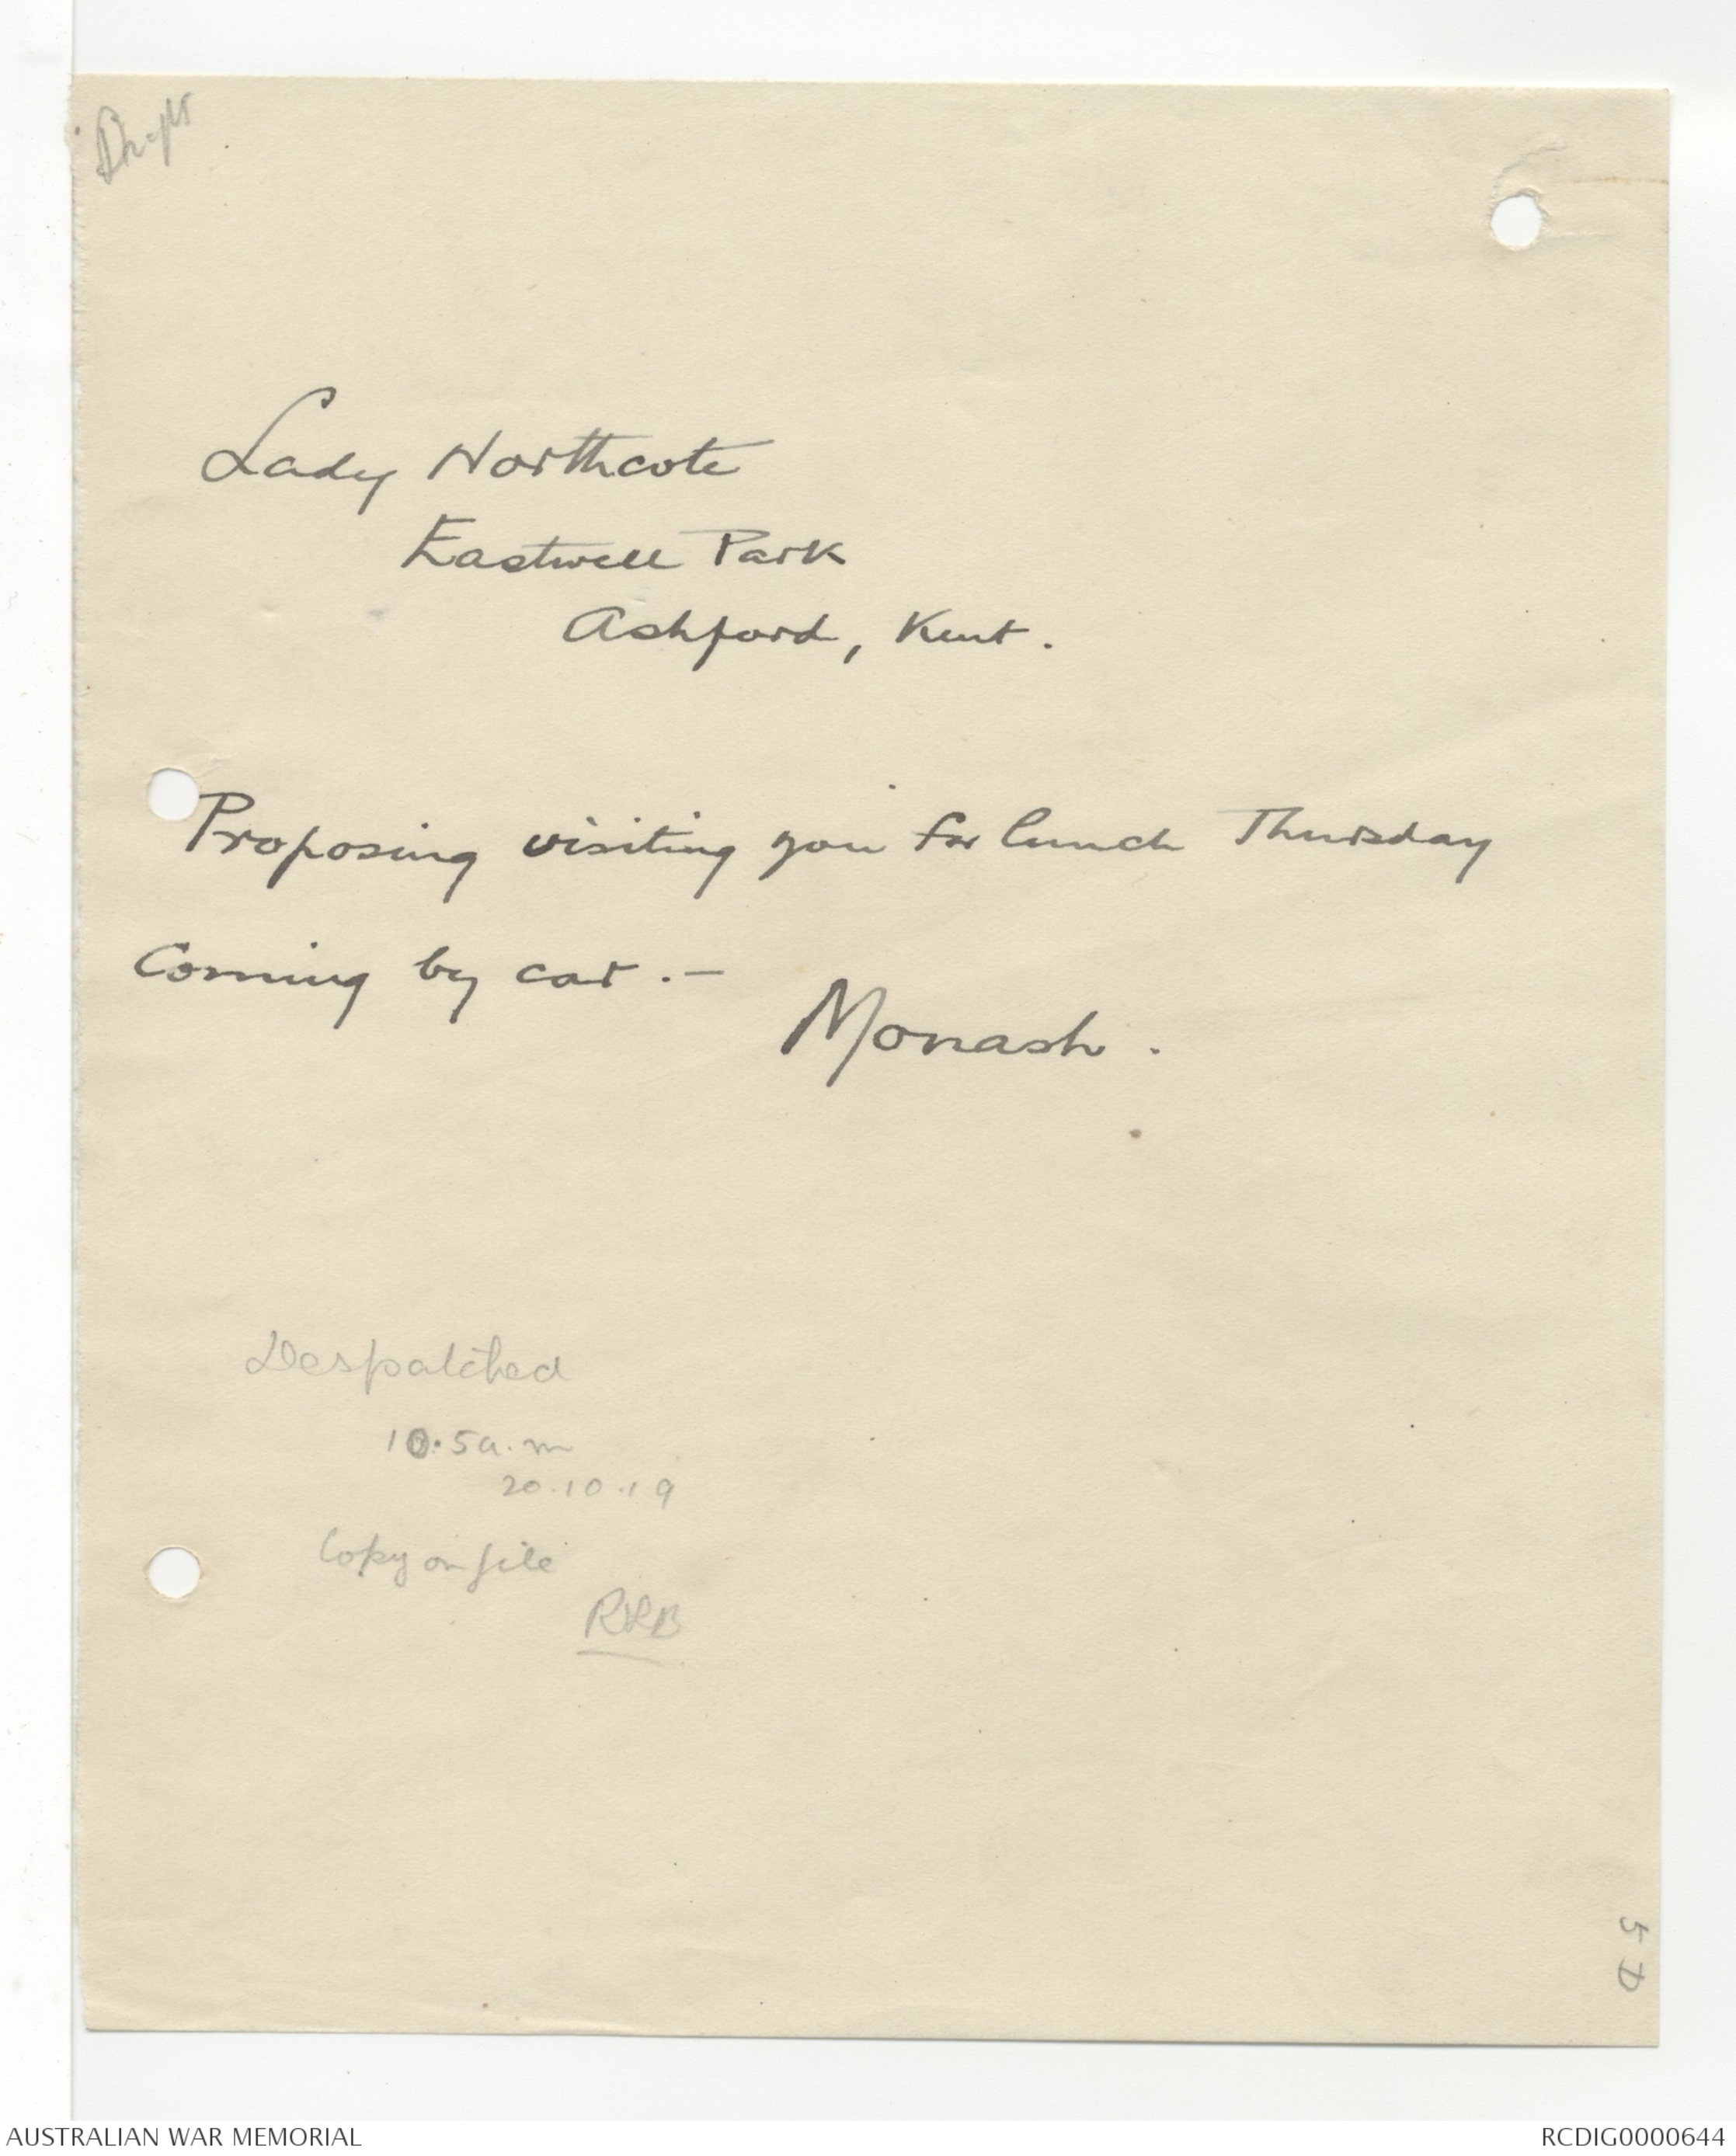 Draft
Lady Northcote
Eastwell Park
Ashford, Kent.
Proposing visiting you for lunch Thursday
Coming by car. —
Monash.
Despatched
10.5 a.m
20.10.19
Copy on file
5 D
AUSTRALIAN WAR MEMORIAL
RCDIG0000644